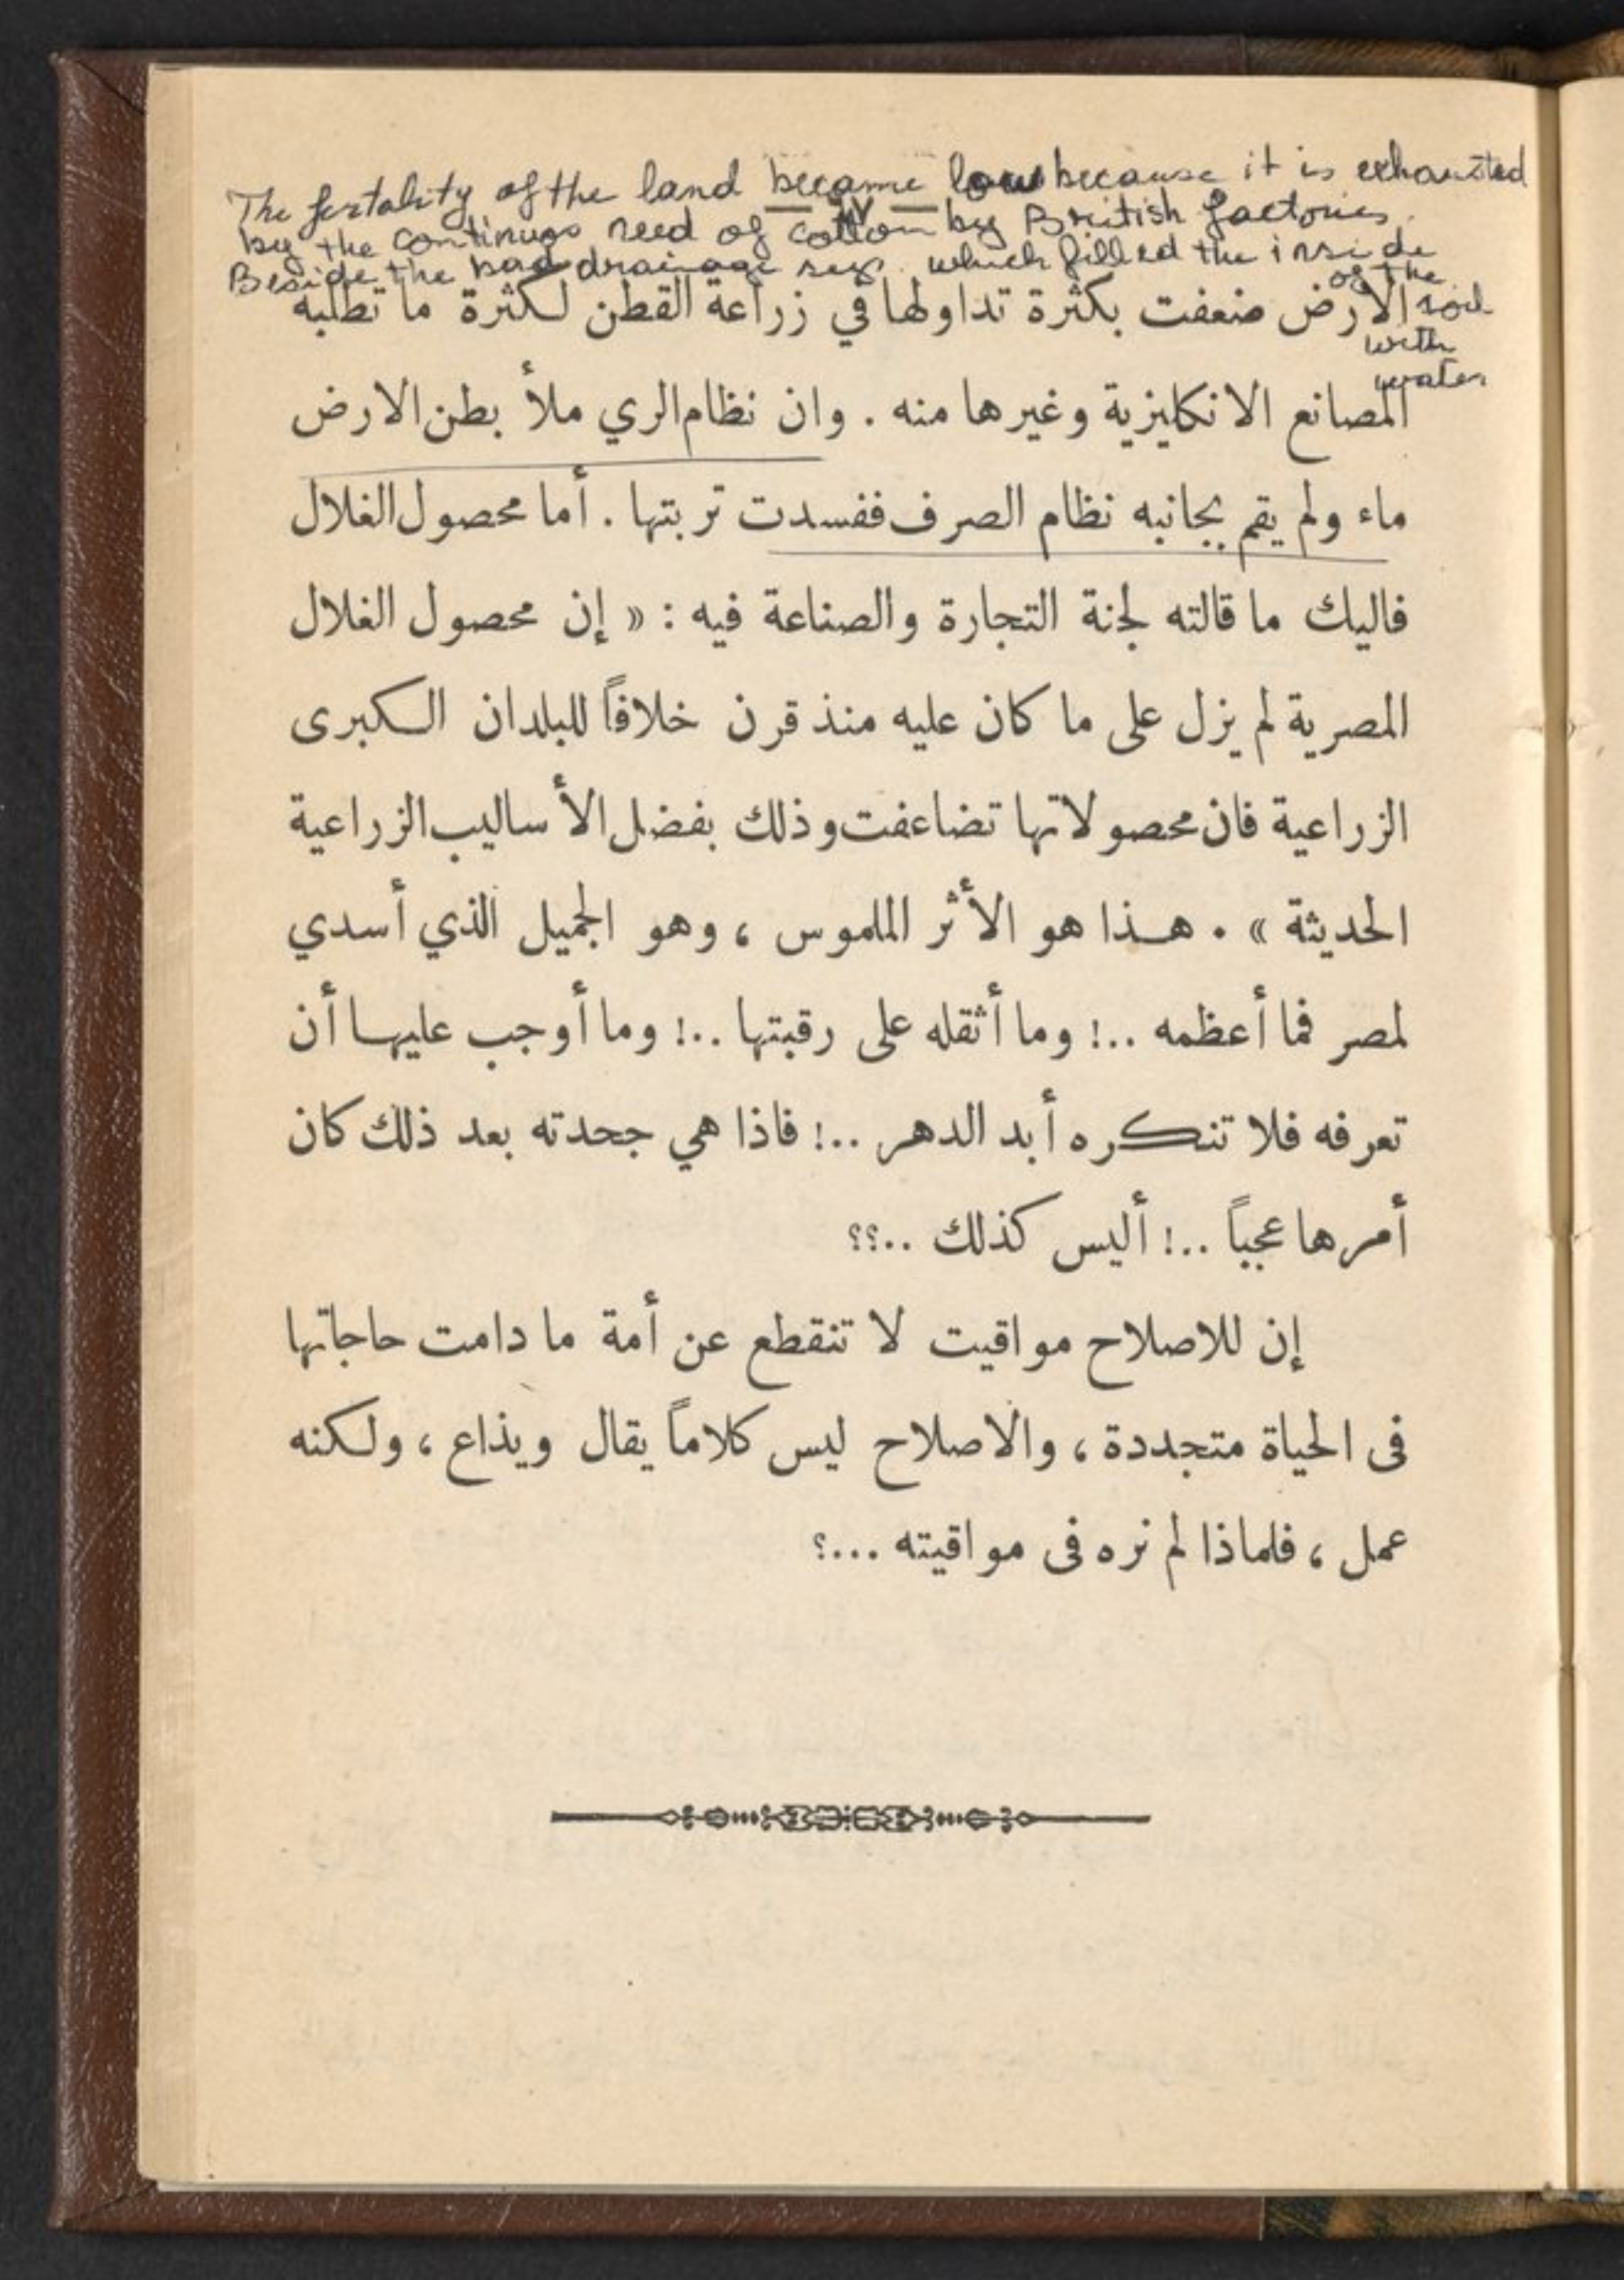 The fertality of the land became low because it is exhausted
by the continuos need of cotton by British factories.
Beside the bad drainage which filled the inside
of the
soil
with
water
الارض ضعفت بكثرة تداولها في زراعة القطن لكثرة ما تطلبه
المصانع الانكليزية وغيرها منه . وان نظام الري ملأ بطن الارض
ماء ولم يقم بجانبه نظام الصرف ففسدت تربتها . أما محصول الغلال
فاليك ما قالته لجنة التجارة والصناعة فيه : « إن محصول الغلال
المصرية لم يزل على ما كان عليه منذ قرن خلافاً للبلدان الكبرى
الزراعية فان محصولاتها تضاعفت وذلك بفضل الأساليب الزراعية
الحديثة » . هذا هو الأثر الملموس ، وهو الجميل الذي أسدي
لمصر فما أعظمه ..! وما أثقله على رقبتها ..! وما أوجب عليها أن
تعرفه فلا تنكره أبد الدهر ..! فاذا هي جحدته بعد ذلك كان
أمرها عجباً ..! أليس كذلك ..؟؟
إن للاصلاح مواقيت لا تنقطع عن أمة ما دامت حاجاتها
فى الحياة متجددة ، والاصلاح ليس كلاماً يقال ويذاع ، ولكنه
عمل ، فلماذا لم نره فى مواقيته ...؟